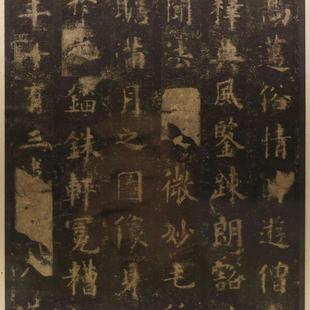 邁俗情遊僧
釋典風鑒疎朗豁
聞法微妙毛
瞻滿月之圖像身
錙銖軒冕糟
年十有三八